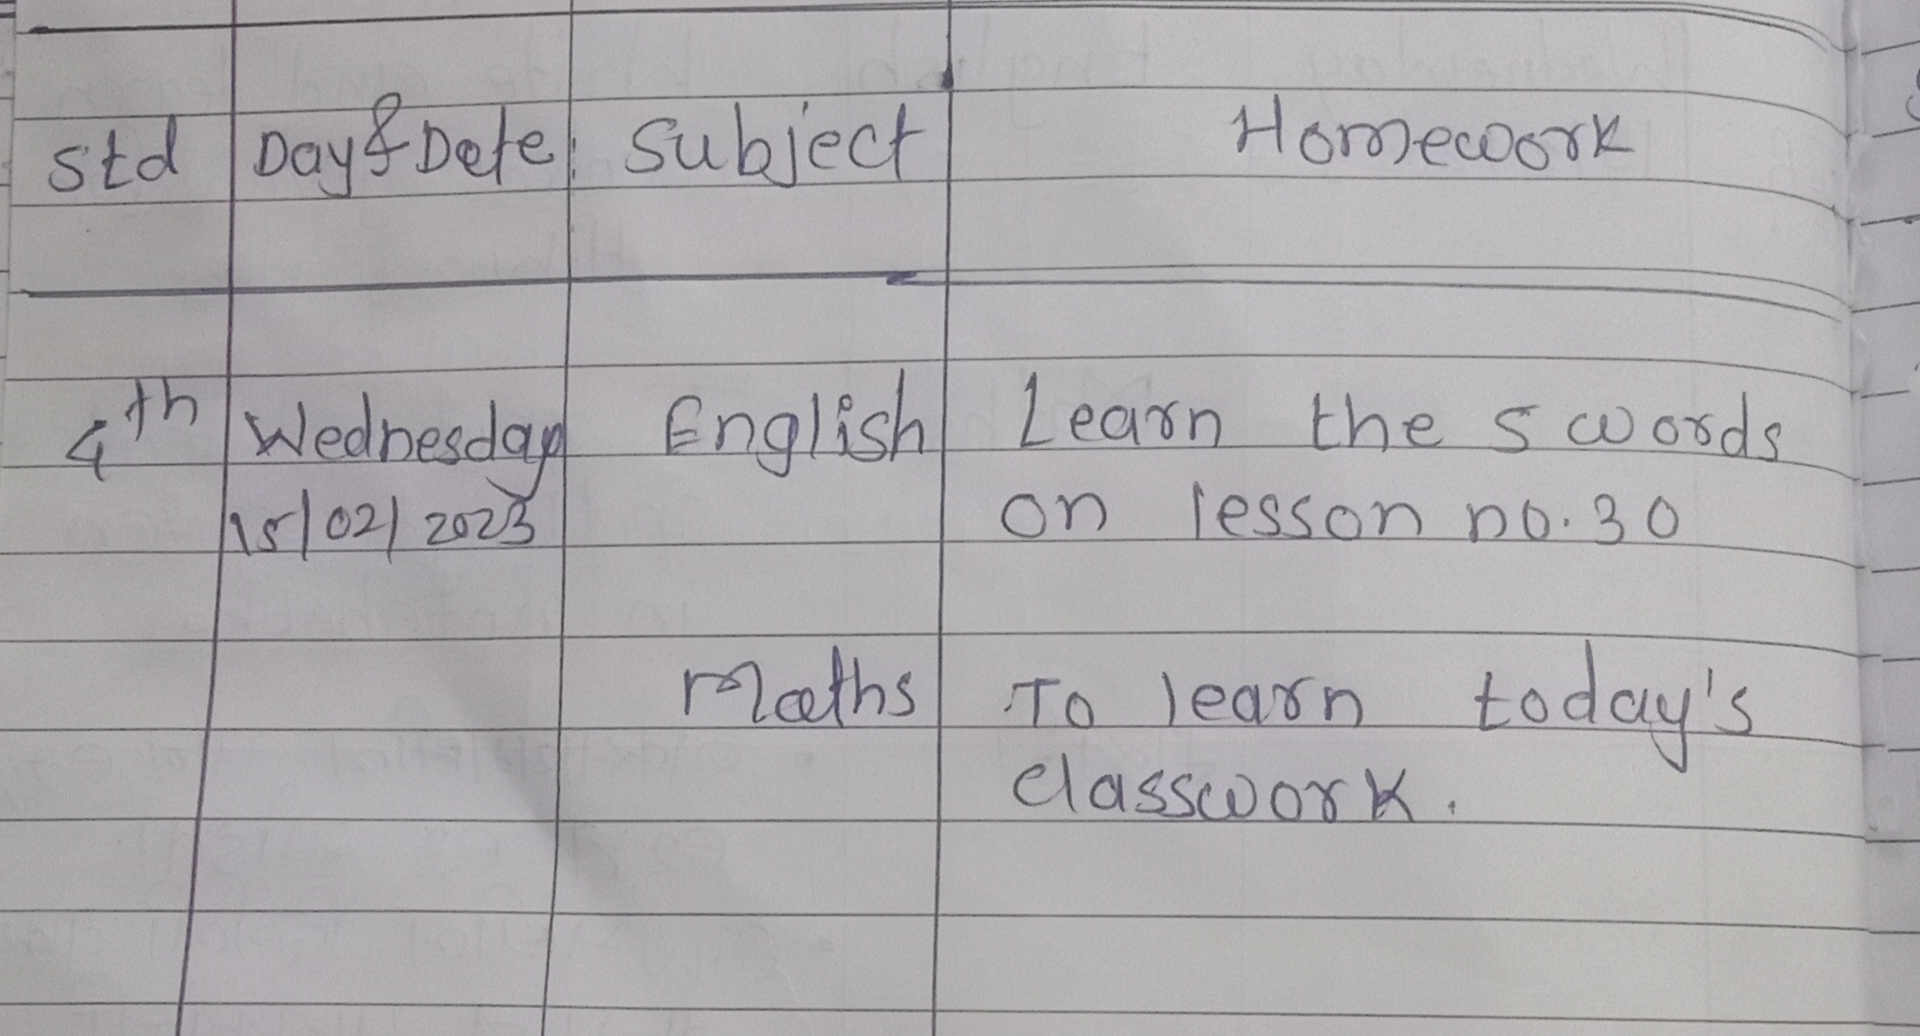 Std Day & Date: Subject Homework
4th Wednesday English Learn the 5 words
15/02/2023 on lesson no. 30
Maths To learn today's
classwork.